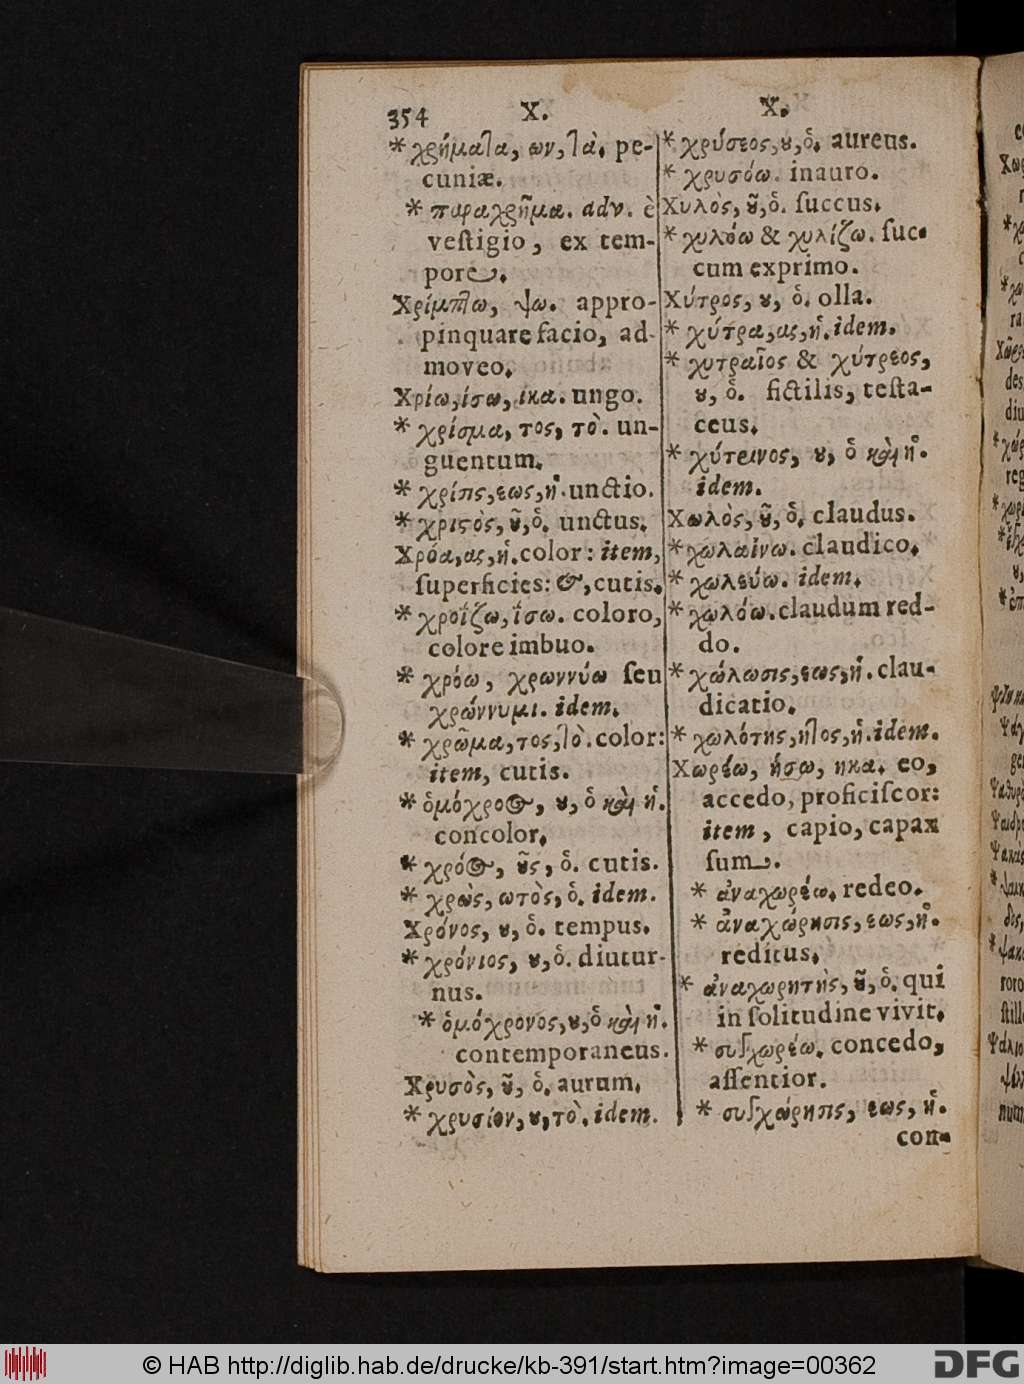 354 X. X.
* χρήματα, ων, τὰ. pe-
cuniæ.
* παραχρῆμα. adv. è
veſtigio, ex tem-
pore.
Χρίμπτω, ψω. appro-
pinquare facio, ad-
moveo.
Χρίω, ίσω, ικα. ungo.
* χρίσμα, τος, τὸ. un-
guentum.
* χρίσις, εως, ἡ. unctio.
* χριςὸς, ȣ͂, ὁ. unctus.
Χρόα, ας, ἡ. color: item,
ſuperficies: &, cutis.
* χροΐζω, ΐσω. coloro,
colore imbuo.
* χρόω, χρωννύω ſeu
χρώννυμι. idem.
* χρῶμα, τος, τὸ. color:
item, cutis.
* ὁμόχροος, ȣ, ὁ καὶ ἡ.
concolor.
* χρόος, ȣ͂ς, ὁ. cutis.
* χρὼς, ωτὸς, ὁ. idem.
Χρόνος, ȣ, ὁ. tempus.
* χρόνιος, ȣ, ὁ. diutur-
nus.
* ὁμόχρονος, ȣ, ὁ καὶ ἡ.
contemporaneus.
Χρυσὸς, ȣ͂, ὁ. aurum.
* χρυσίον, ȣ, τὸ. idem.
* χρύσεος, ȣ, ὁ. aureus.
* χρυσόω. inauro.
Χυλὸς, ȣ͂, ὁ. ſuccus.
* χυλόω & χυλίζω. ſuc-
cum exprimo.
Χύτρος, ȣ, ὁ. olla.
* χύτρα, ας, ἡ. idem.
* χυτραῖος & χύτρεος,
ȣ, ὁ. fictilis, teſta-
ceus.
* χύτεινος, ȣ, ὁ καὶ ἡ.
idem.
Χωλὸς, ȣ͂, ὁ. claudus.
* χωλαίνω. claudico.
* χωλεύω. idem.
* χωλόω. claudum red-
do.
* χώλωσις, εως, ἡ. clau-
dicatio.
* χωλότης, ητος, ἡ. idem.
Χωρέω, ήσω, ηκα. eo,
accedo, proficiſcor:
item, capio, capax
ſum.
* ἀναχωρέω. redeo.
* ἀναχώρησις, εως, ἡ.
reditus.
* ἀναχωρητὴς, ȣ͂, ὁ. qui
in ſolitudine vivit.
* συγχωρέω. concedo,
aſſentior.
* συγχώρησις, εως, ἡ.
con-
© HAB http://diglib.hab.de/drucke/kb-391/start.htm?image=00362
DFG